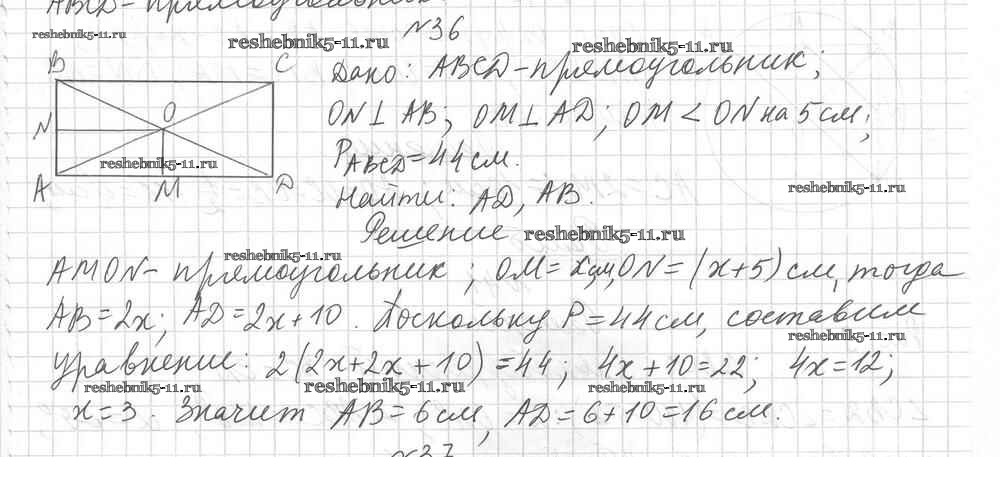 ABCD - прямоугольник.
reshebnik5-11.ru reshebnik5-11.ru №36 reshebnik5-11.ru
B C Дано: ABCD - прямоугольник;
N O ON⊥AB; OM⊥AD; OM < ON на 5 см;
reshebnik5-11.ru P_ABCD = 44 см.
A M D Найти: AD, AB. reshebnik5-11.ru
Решение reshebnik5-11.ru
reshebnik5-11.ru
AMON - прямоугольник; OM = x см, ON = (x+5) см, тогда
AB = 2x; AD = 2x + 10. Поскольку P = 44 см, составим
reshebnik5-11.ru
уравнение: 2(2x+2x+10) = 44; 4x+10=22; 4x=12;
reshebnik5-11.ru reshebnik5-11.ru reshebnik5-11.ru
x = 3. Значит AB = 6 см, AD = 6+10 = 16 см.
№37